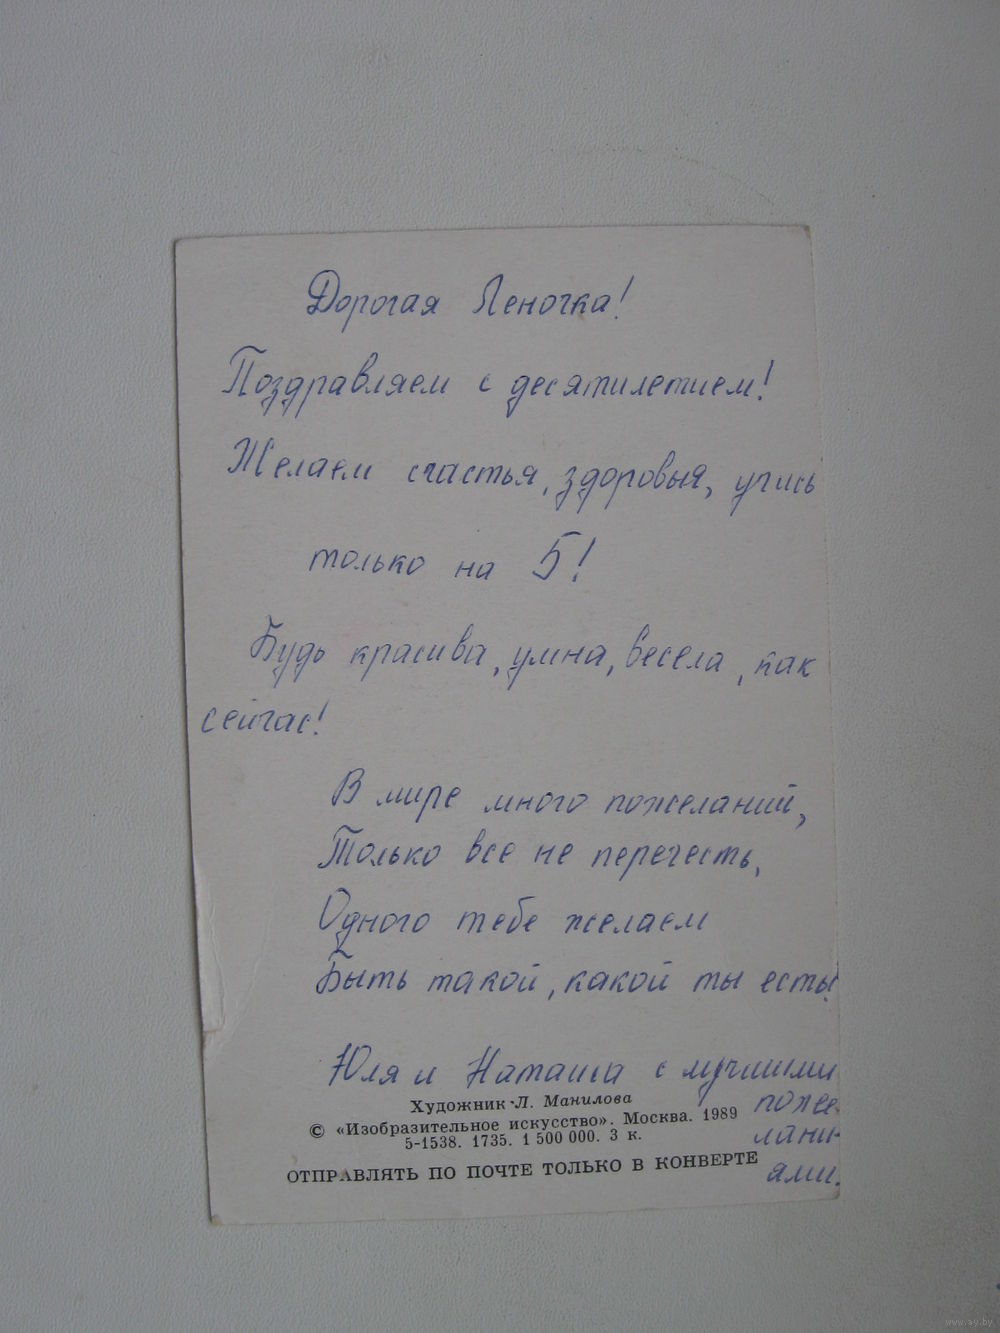 Дорогая Леночка!
Поздравляем с десятилетием!
Желаем счастья, здоровья, учись
только на 5!
Будь красива, умна, весела, как
сейчас!
В мире много пожеланий,
Только все не перечесть,
Одного тебе желаем
Быть такой, какой ты есть!
Юля и Наташа с лучшими
поже-
лани-
ями.
Художник Л. Манилова
© «Изобразительное искусство». Москва. 1989
5-1538. 1735. 1 500 000. 3 к.
ОТПРАВЛЯТЬ ПО ПОЧТЕ ТОЛЬКО В КОНВЕРТЕ
www.ay.by